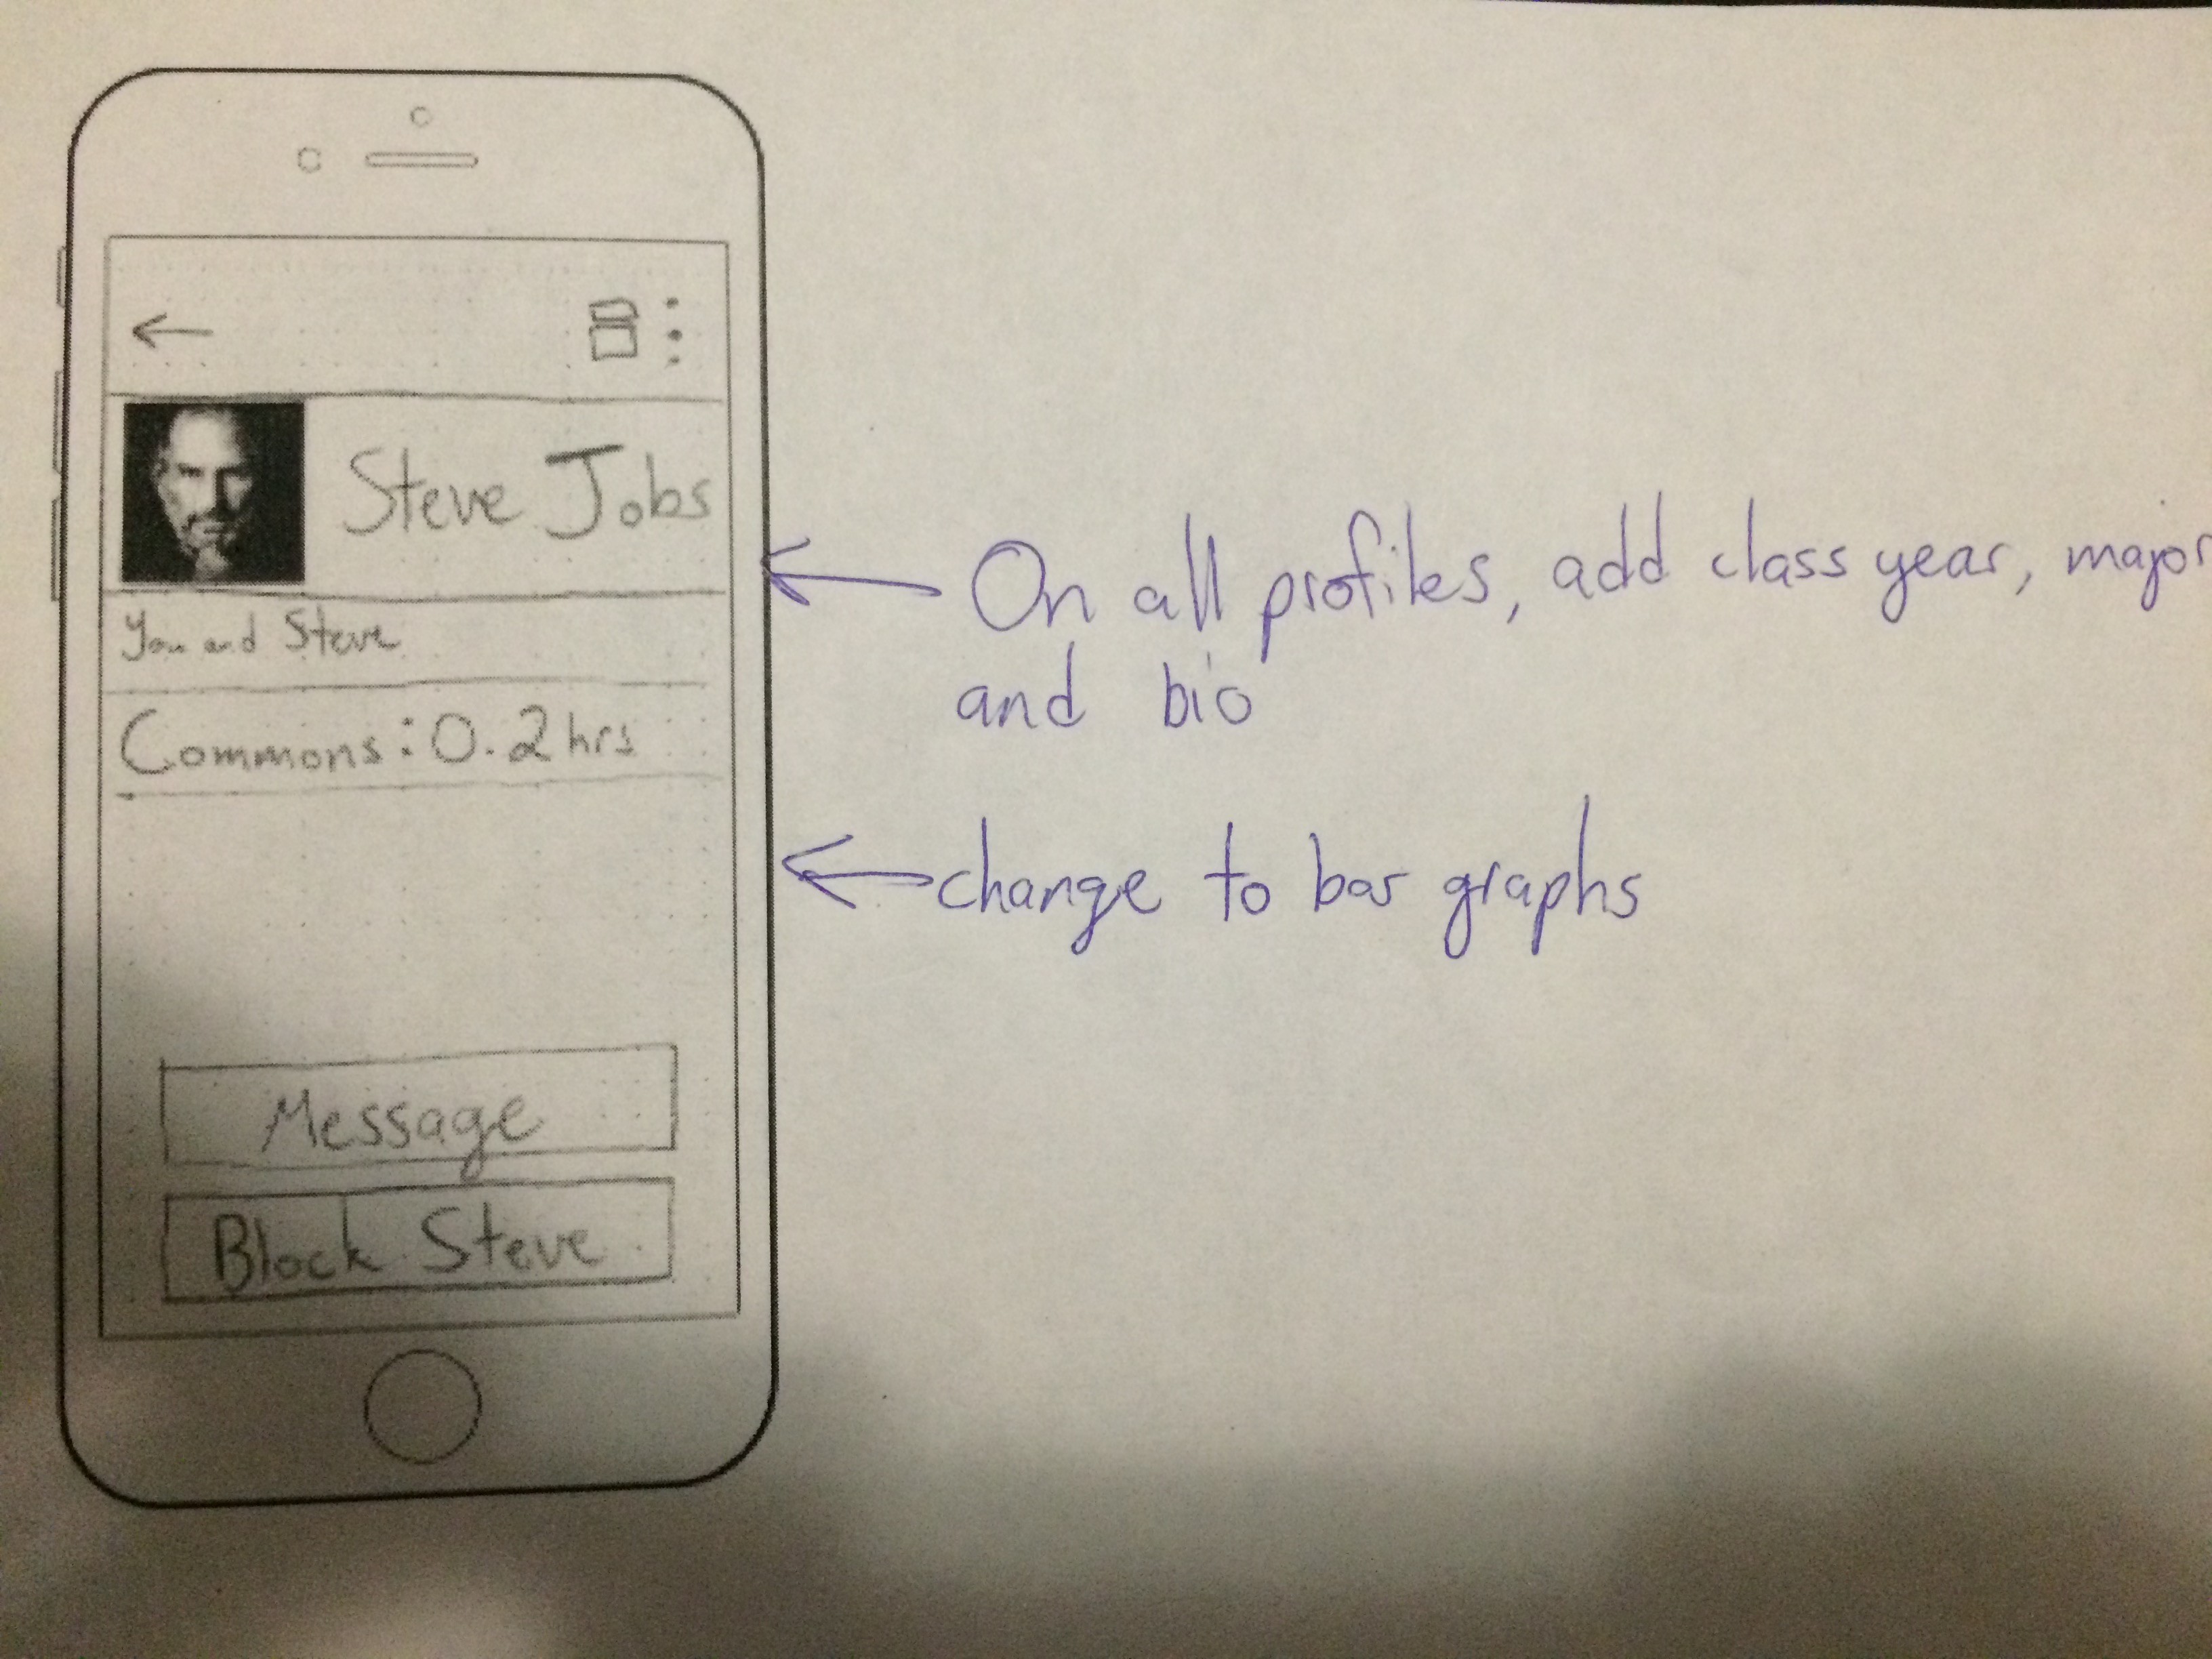 Steve Jobs
You and Steve
Commons: 0.2 hrs
Message
Block Steve
On all profiles, add class year, major
and bio
change to bar graphs